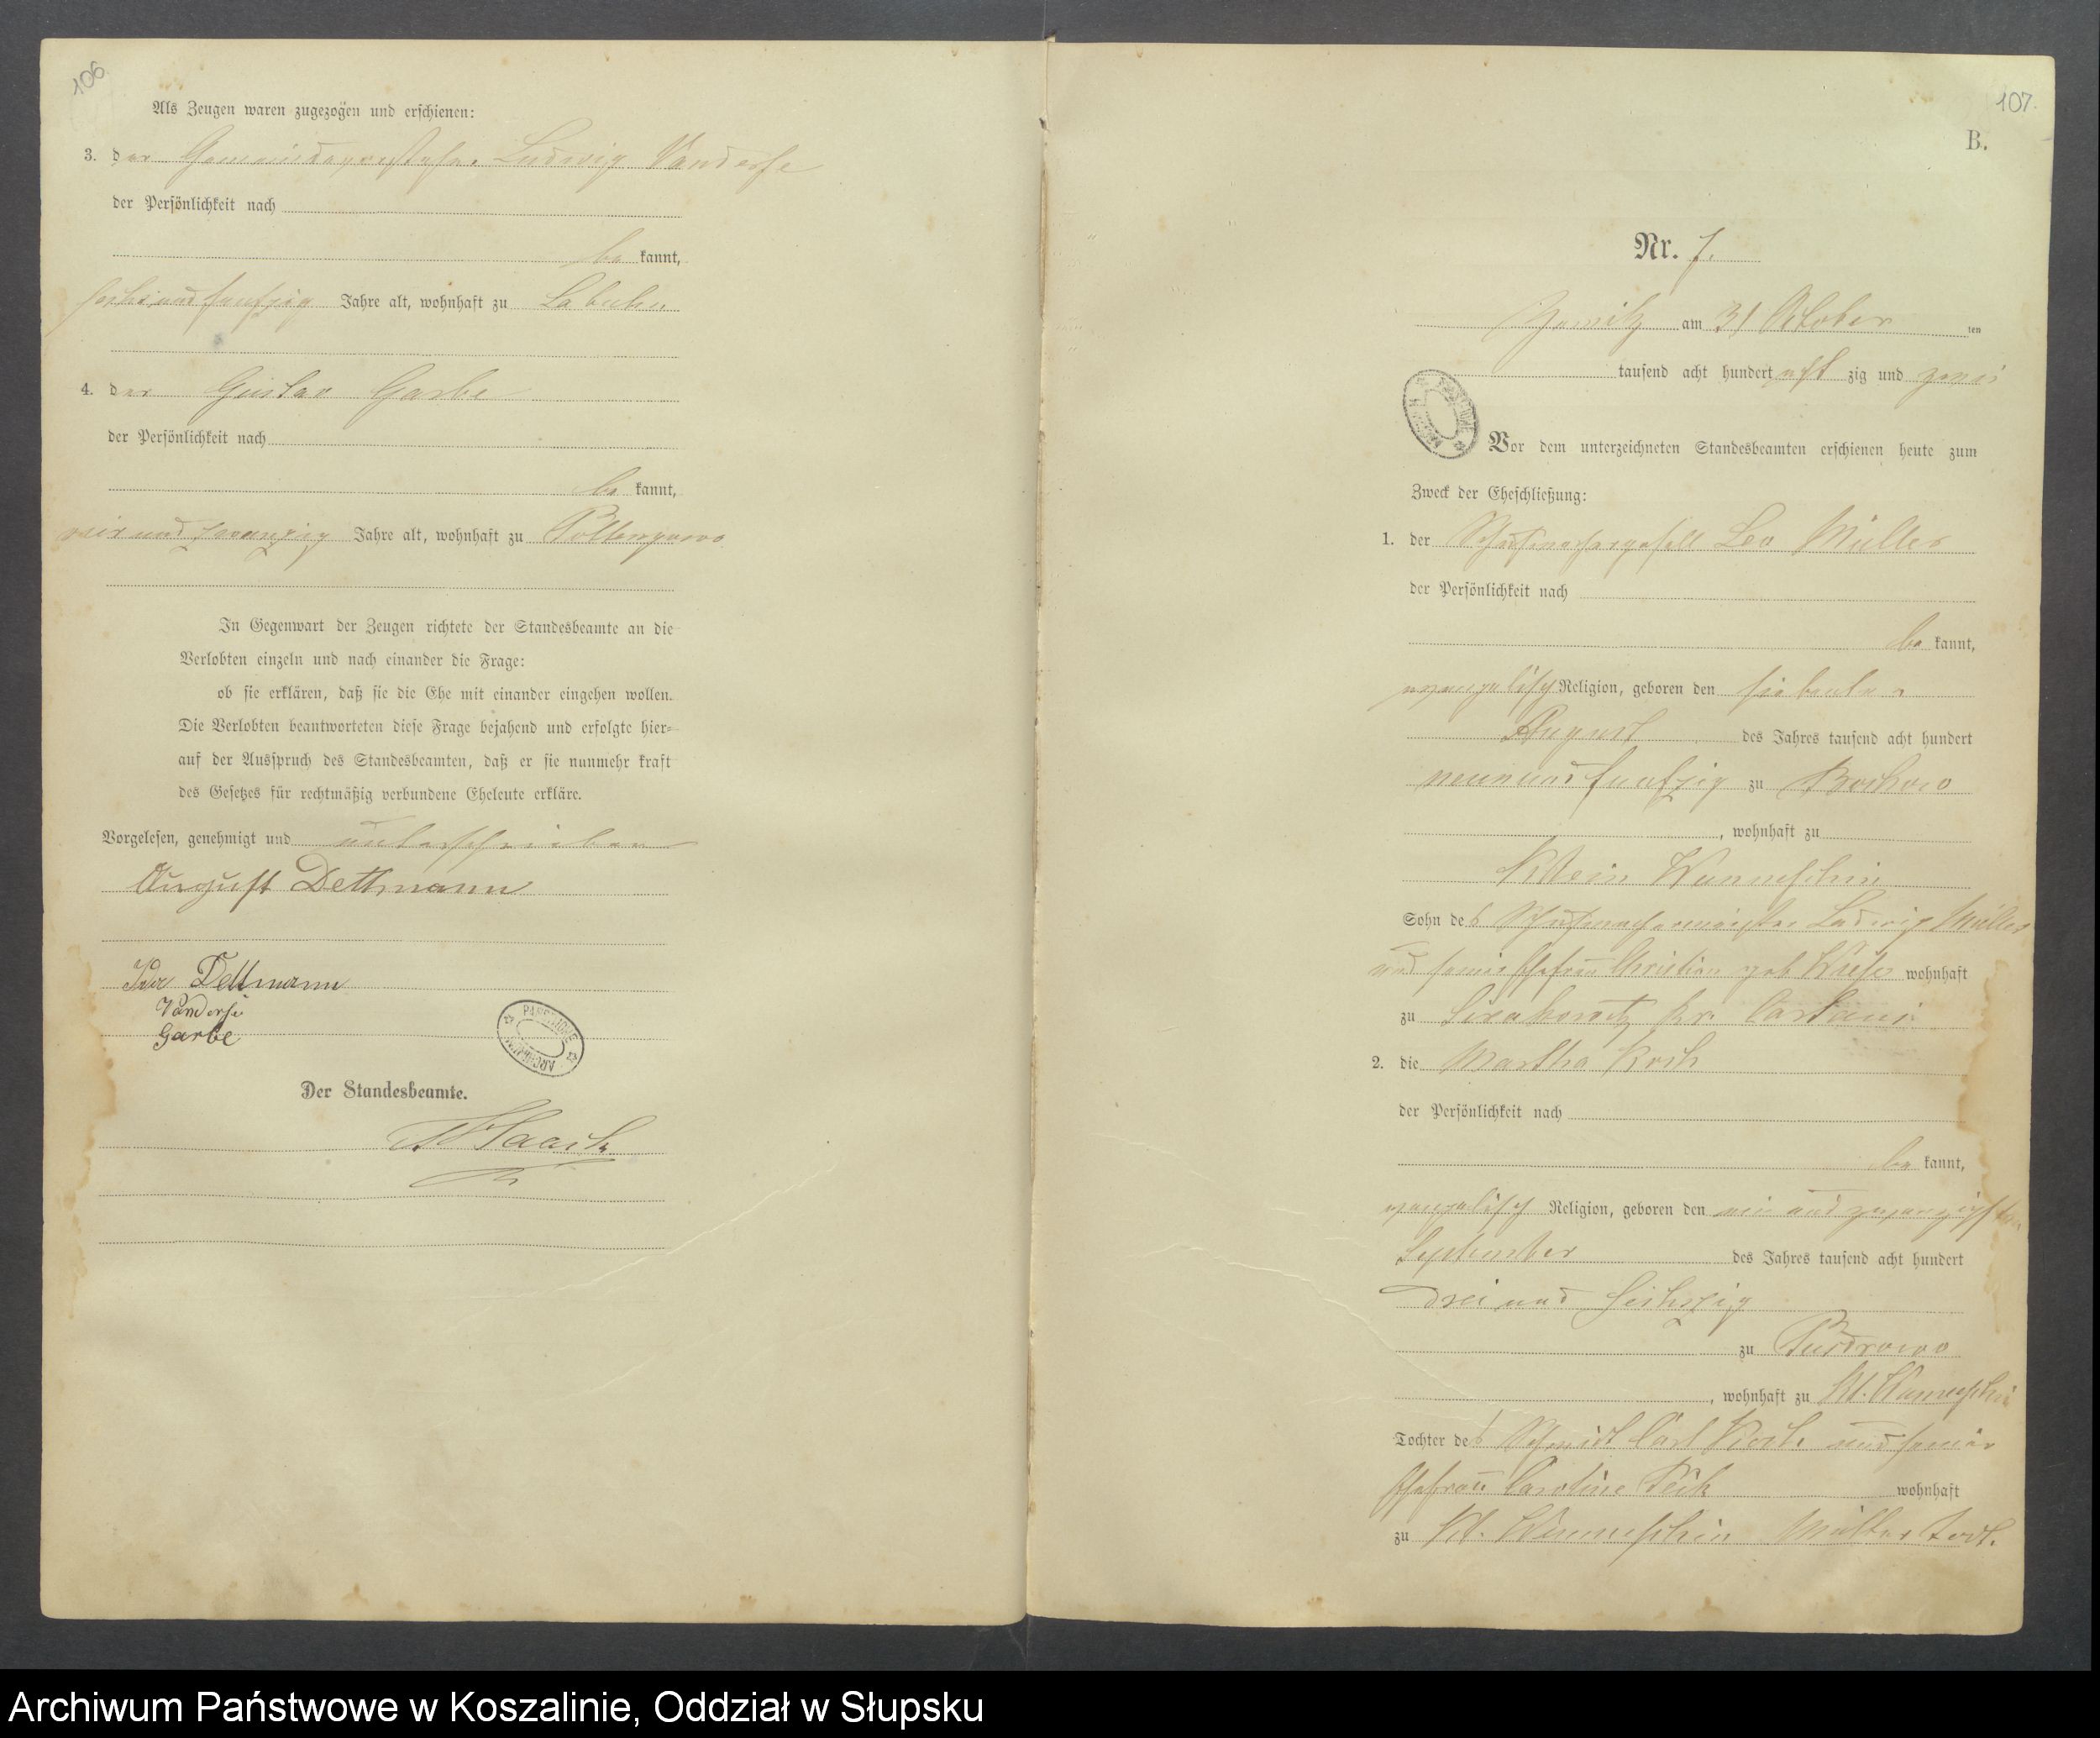 106
Als Zeugen waren zugezogen und erschienen:
3. der Gemeindevorsteher Ludwig Vanderse
der Persönlichkeit nach
be kannt,
sechs und funfzig Jahre alt, wohnhaft zu Labuhn
4. der Gustav Garbe
der Persönlichkeit nach
be kannt,
und zwanzig Jahre alt, wohnhaft zu
In Gegenwart der Zeugen richtete der Standesbeamte an die
Verlobten einzeln und nach einander die Frage:
ob sie erklären, daß sie die Ehe mit einander eingehen wollen.
Die Verlobten beantworteten diese Frage bejahend und erfolgte hier=
auf der Ausspruch des Standesbeamten, daß er sie nunmehr kraft
des Gesetzes für rechtmäßig verbundene Eheleute erkläre.
Vorgelesen, genehmigt und unterschrieben
August Dettmann
Ida Dettmann
Vanderse
Garbe
Der Standesbeamte.
107.
B.
Nr. 7.
am 31 October ten
tausend acht hundert acht zig und zwei
Vor dem unterzeichneten Standesbeamten erschienen heute zum
Zweck der Eheschließung:
1. der Schuhmachergesell Leo Müller
der Persönlichkeit nach
be kannt,
evangelisch Religion, geboren den siebenten
August des Jahres tausend acht hundert
neun und funfzig zu
, wohnhaft zu
Klein Wunneschin
Sohn des Schuhmachermeister Ludwig Müller
und seiner Ehefrau geb wohnhaft
zu Sierakowitz Kr. Carthaus
2. die Martha Koch
der Persönlichkeit nach
be kannt,
evangelisch Religion, geboren den ein und zwanzigsten
September des Jahres tausend acht hundert
drei und sechszig
zu Pusdrowo
, wohnhaft zu Kl. Wunneschin
Tochter des Schmidt Carl Koch und seiner
Ehefrau Caroline wohnhaft
zu Kl. Wunneschin Mutter todt.
Archiwum Państwowe w Koszalinie, Oddział w Słupsku